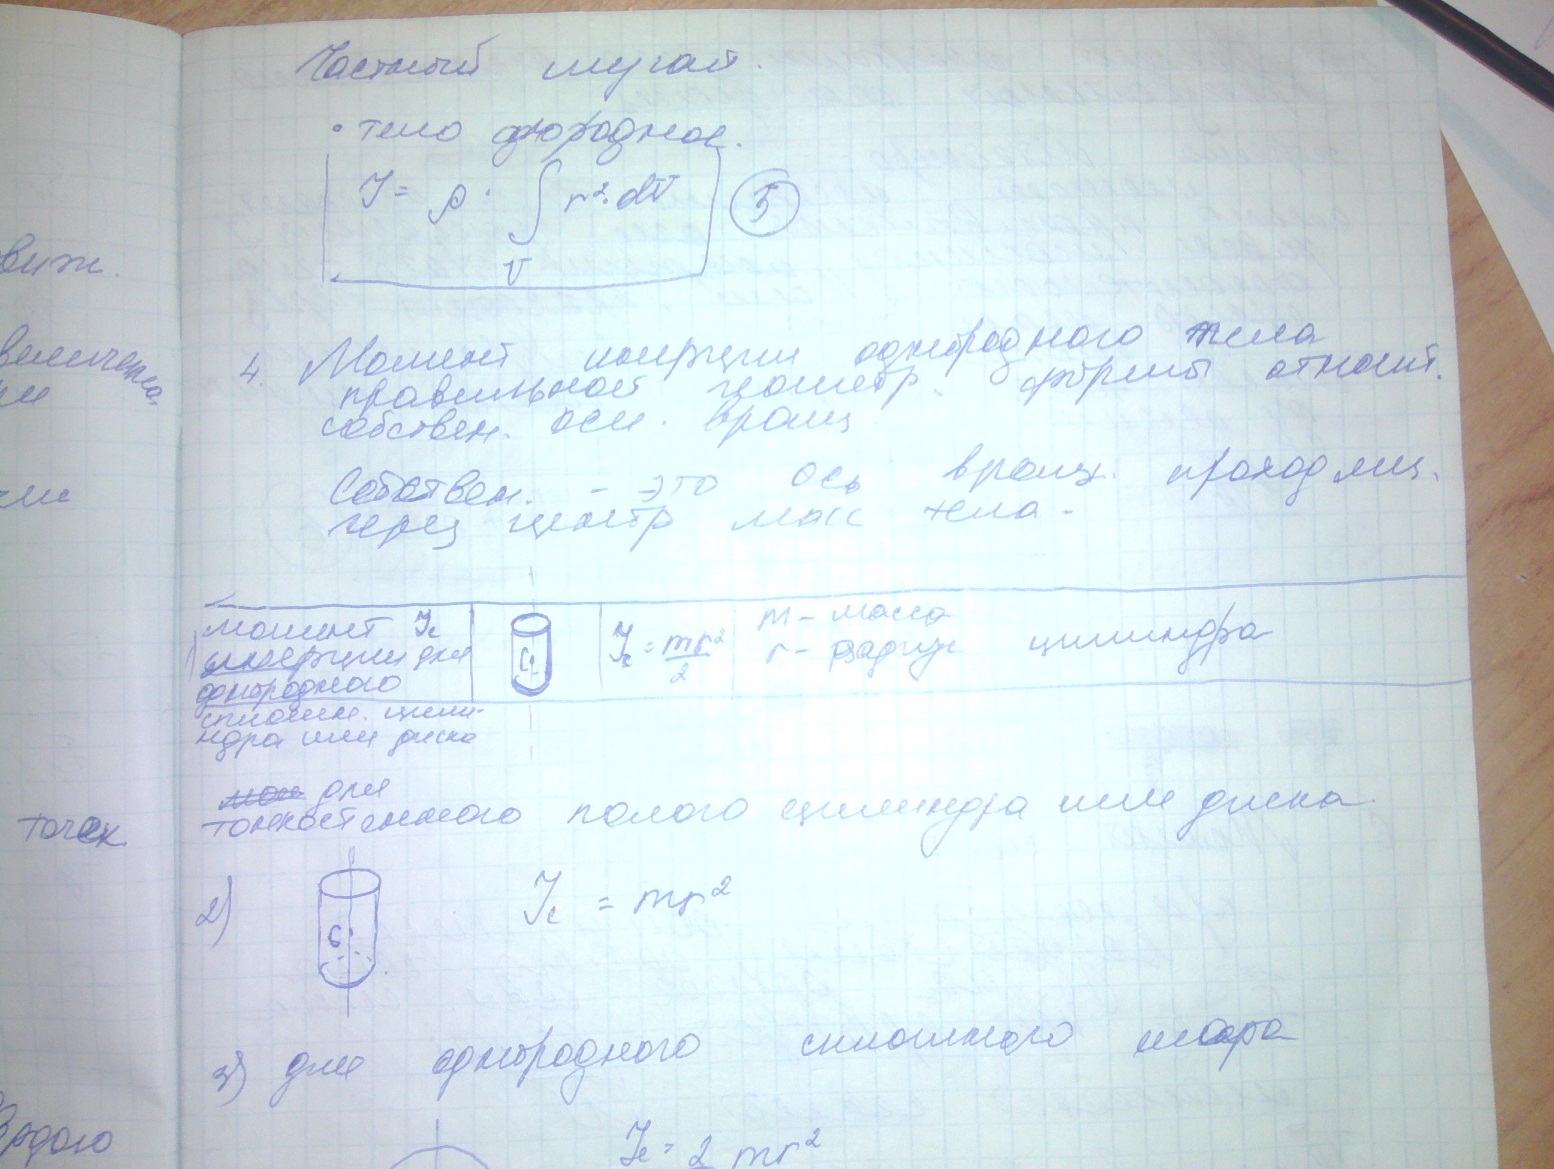 Частный случай.
• тело однородное.
J = ρ · ∫ r² · dV (5)
V
4. Момент инерции однородного тела
правильной геометр. формы относит.
собствен. оси. вращ
Собствен. - это ось вращ. проходящ.
через центр масс тела.
момент Jc
инерции для
однородного
сплошн. цили-
ндра или диска
C
Jc = mr²/2
m - масса
r - радиус цилиндра
для
тонкостенного полого цилиндра или диска
2)
C
Jc = mr²
3) для однородного сплошного шара
Jc = 2 mr²
виж.
величена
ии
точек